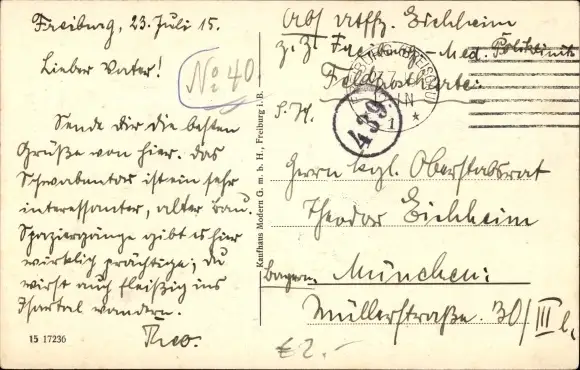 Freiburg, 23. Juli 15.
Lieber Vater!
No 40
Sende dir die besten
Grüße von hier. Das
Schwabentor ist ein sehr
interessanter, alter Bau.
Spaziergänge gibt es hier
wirklich prächtige; du
wirst auch fleißig ins
Isartal wandern.
Theo.
15 17236
Kaufhaus Modern G. m. b. H., Freiburg i. B.
Abs. Uffz. Eichheim
z. Zt. Freiburg - Med. Poliklinik
Feldpostkarte.
FREIBURG (BREISGAU)
439
1
S. H.
Herrn kgl. Oberstabsrat
Theodor Eichheim
Bayern. München:
Müllerstraße. 30/III l.
€ 2.-